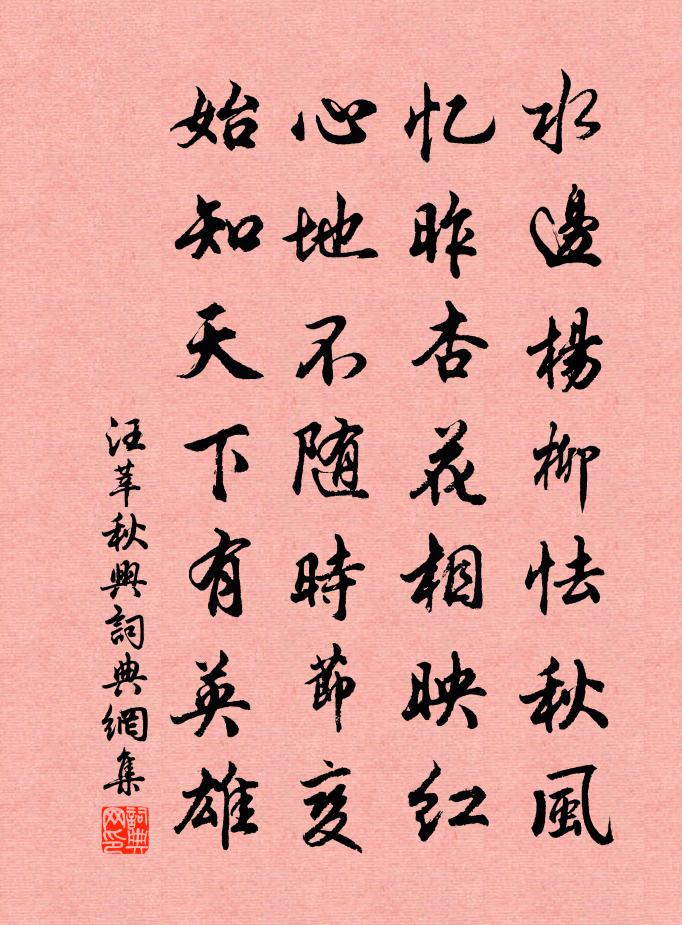 水邊楊柳怯秋風
忆昨杏花相映红
心地不随時節变
始知天下有英雄
汪莘秋興詞典網集
詞典网印